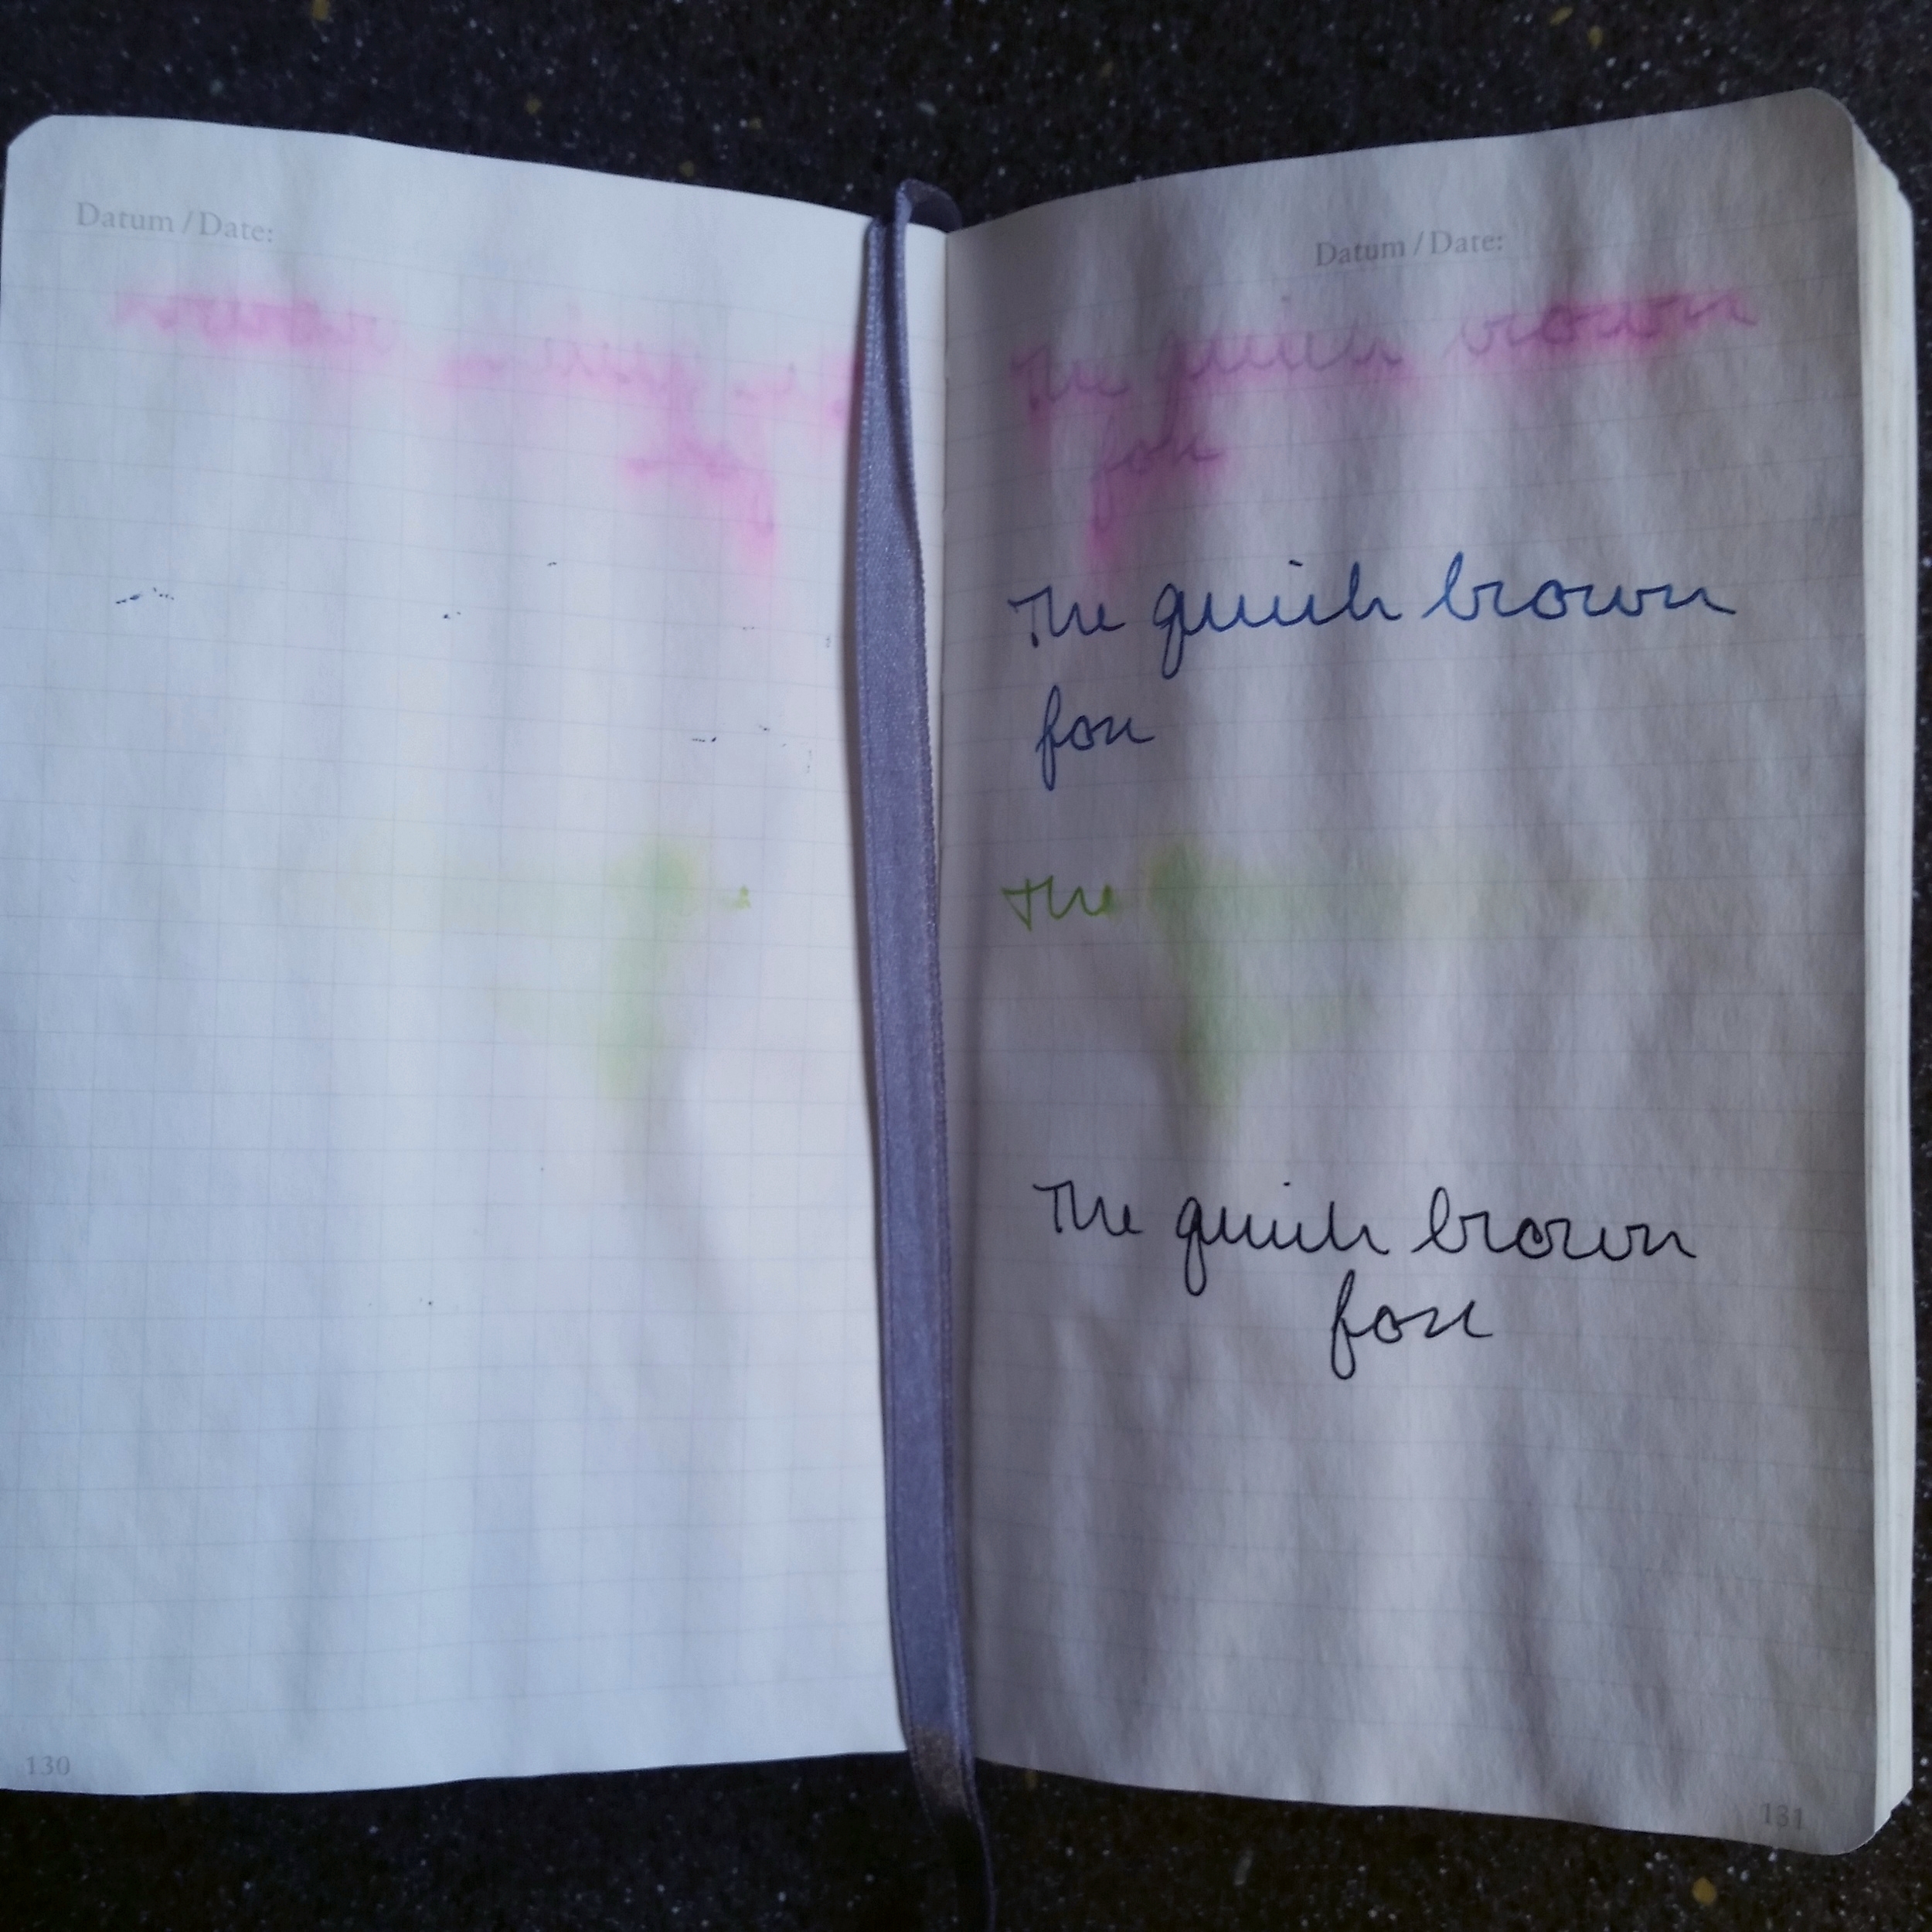 Datum / Date:
Datum / Date:
The quick brown
fox
The quick brown
fox
The
The quick brown
fox
130
131